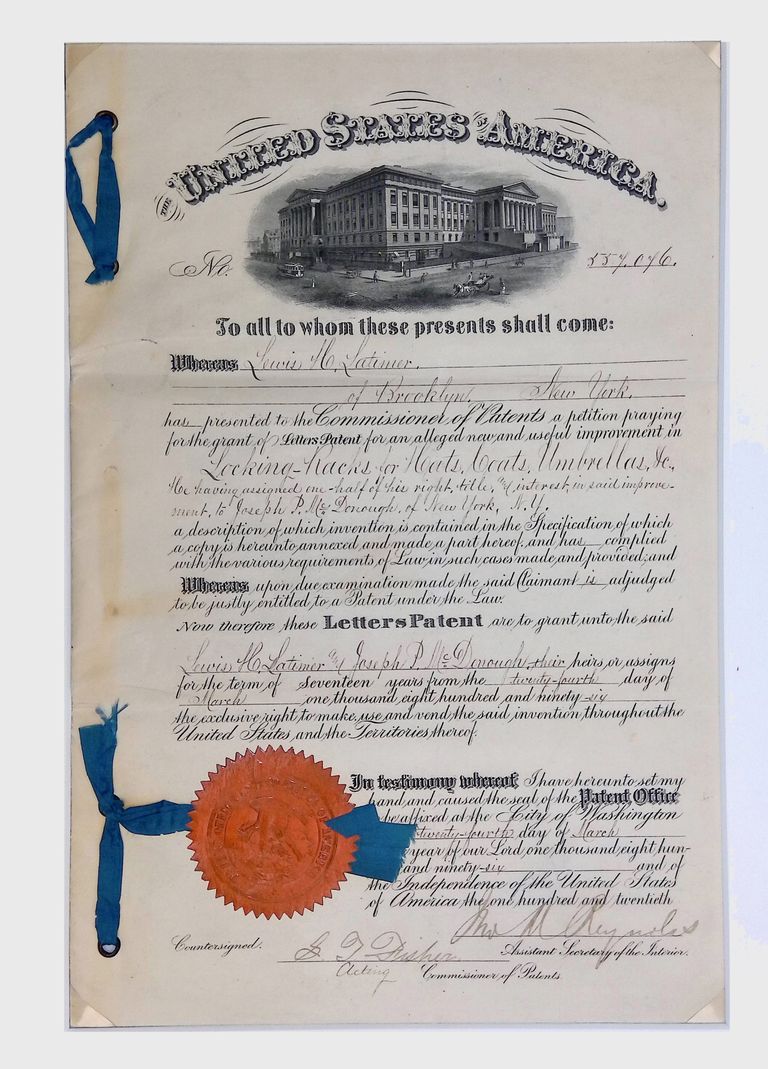 THE UNITED STATES OF AMERICA.
No. 557,076.
To all to whom these presents shall come:
Whereas Lewis H. Latimer,
of Brooklyn, New York,
has presented to the Commissioner of Patents a petition praying
for the grant of Letters Patent for an alleged new and useful improvement in
Locking-Racks for Hats, Coats, Umbrellas, &c.,
He having assigned one-half of his right, title, & interest, in said improve-
ment, to Joseph P. McDonough, of New York, N.Y.
a description of which invention is contained in the Specification of which
a copy is hereunto annexed and made a part hereof, and has complied
with the various requirements of Law in such cases made and provided, and
Whereas upon due examination made the said Claimant is adjudged
to be justly entitled to a Patent under the Law.
Now therefore these Letters Patent are to grant unto the said
Lewis H. Latimer & Joseph P. McDonough, their heirs or assigns
for the term of Seventeen years from the twenty-fourth day of
March one thousand eight hundred and ninety-six
the exclusive right to make, use and vend the said invention throughout the
United States, and the Territories thereof.
In testimony whereof, I have hereunto set my
hand and caused the seal of the Patent Office
be affixed at the City of Washington
twenty-fourth day of March
year of our Lord one thousand eight hun-
and ninety-six and of
the Independence of the United States
of America the one hundred and twentieth
Jno M Reynolds
Countersigned: S. T. Fisher Assistant Secretary of the Interior.
Acting Commissioner of Patents.